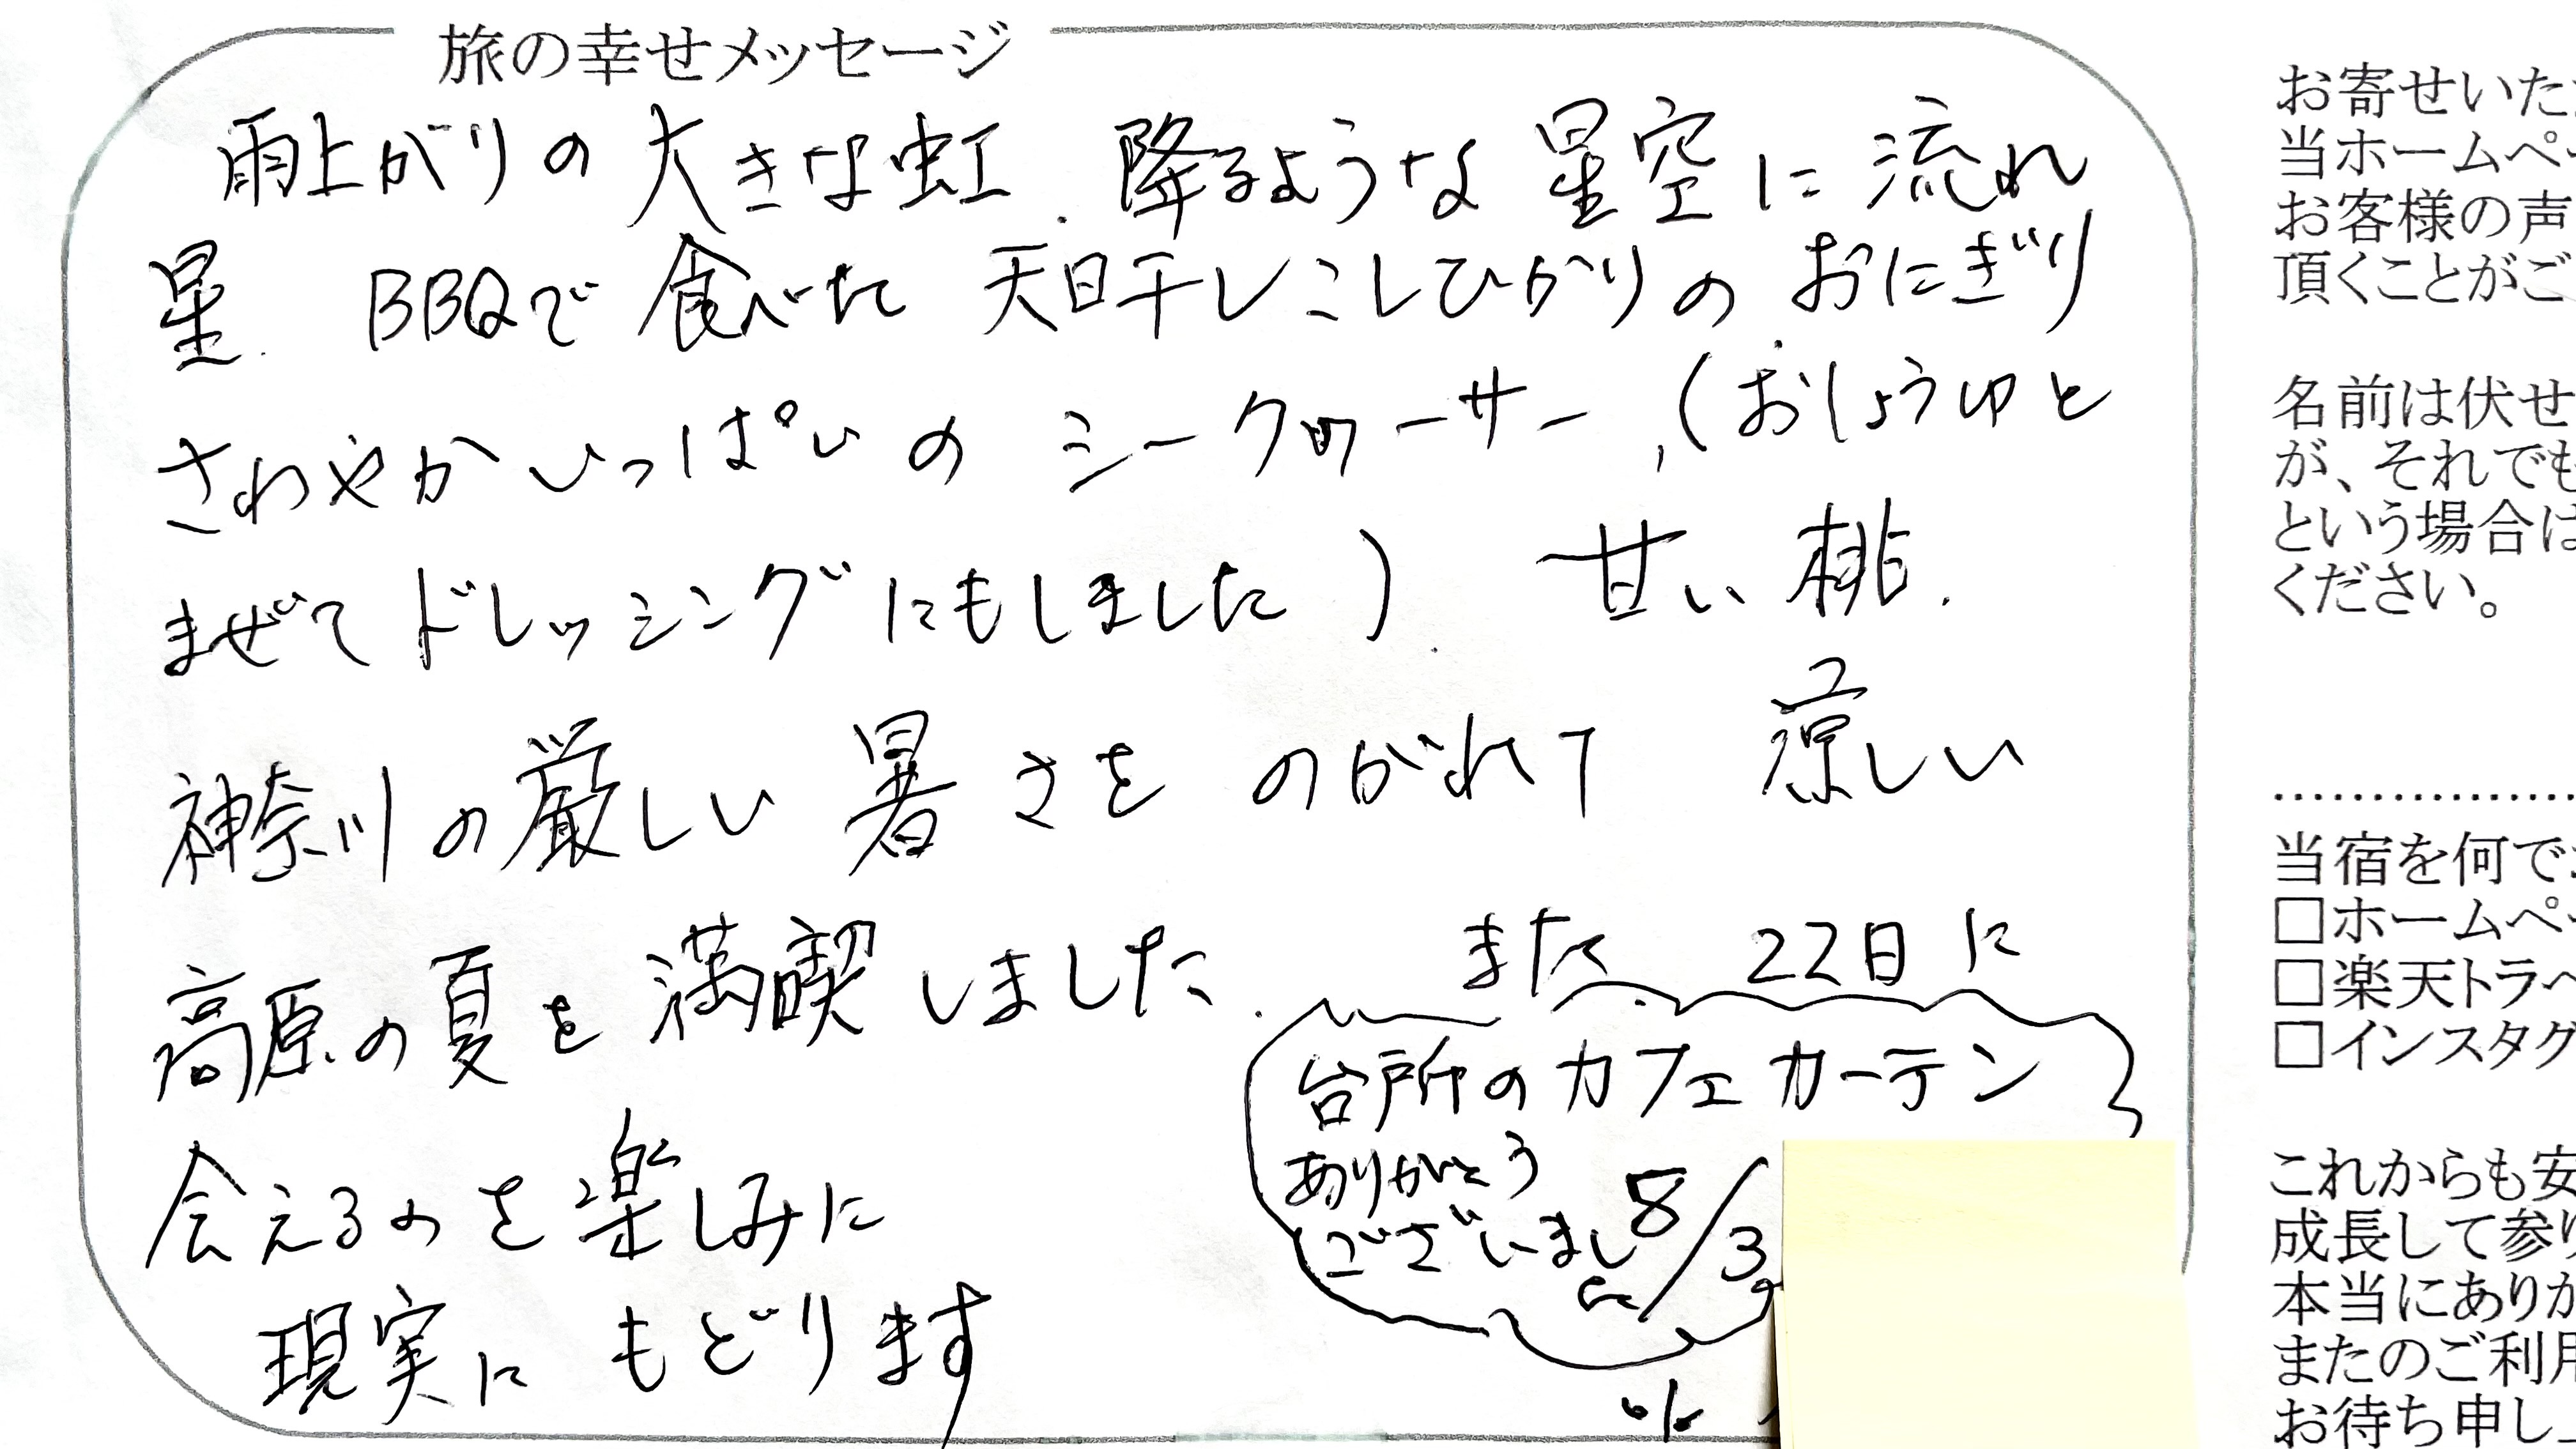 旅の幸せメッセージ
雨上がりの大きな虹.降るような星空に流れ
星. BBQで食べた天日干しこしひかりのおにぎり
さわやかいっぱいのシークヮーサー,(おしょうゆと
まぜてドレッシングにもしました). 甘い桃.
神奈川の厳しい暑さをのがれて 涼しい
高原の夏を満喫しました. また. 22日に
会えるのを楽しみに
現実にもどります
台所のカフェカーテン
ありがとう
ございました
8/3
お寄せいた
当ホームペー
お客様の声
頂くことがご
名前は伏せ
が、それでも
という場合は
ください。
当宿を何で
□ホームペー
□楽天トラベ
□インスタグ
これからも安
成長して参り
本当にありが
またのご利用
お待ち申し上